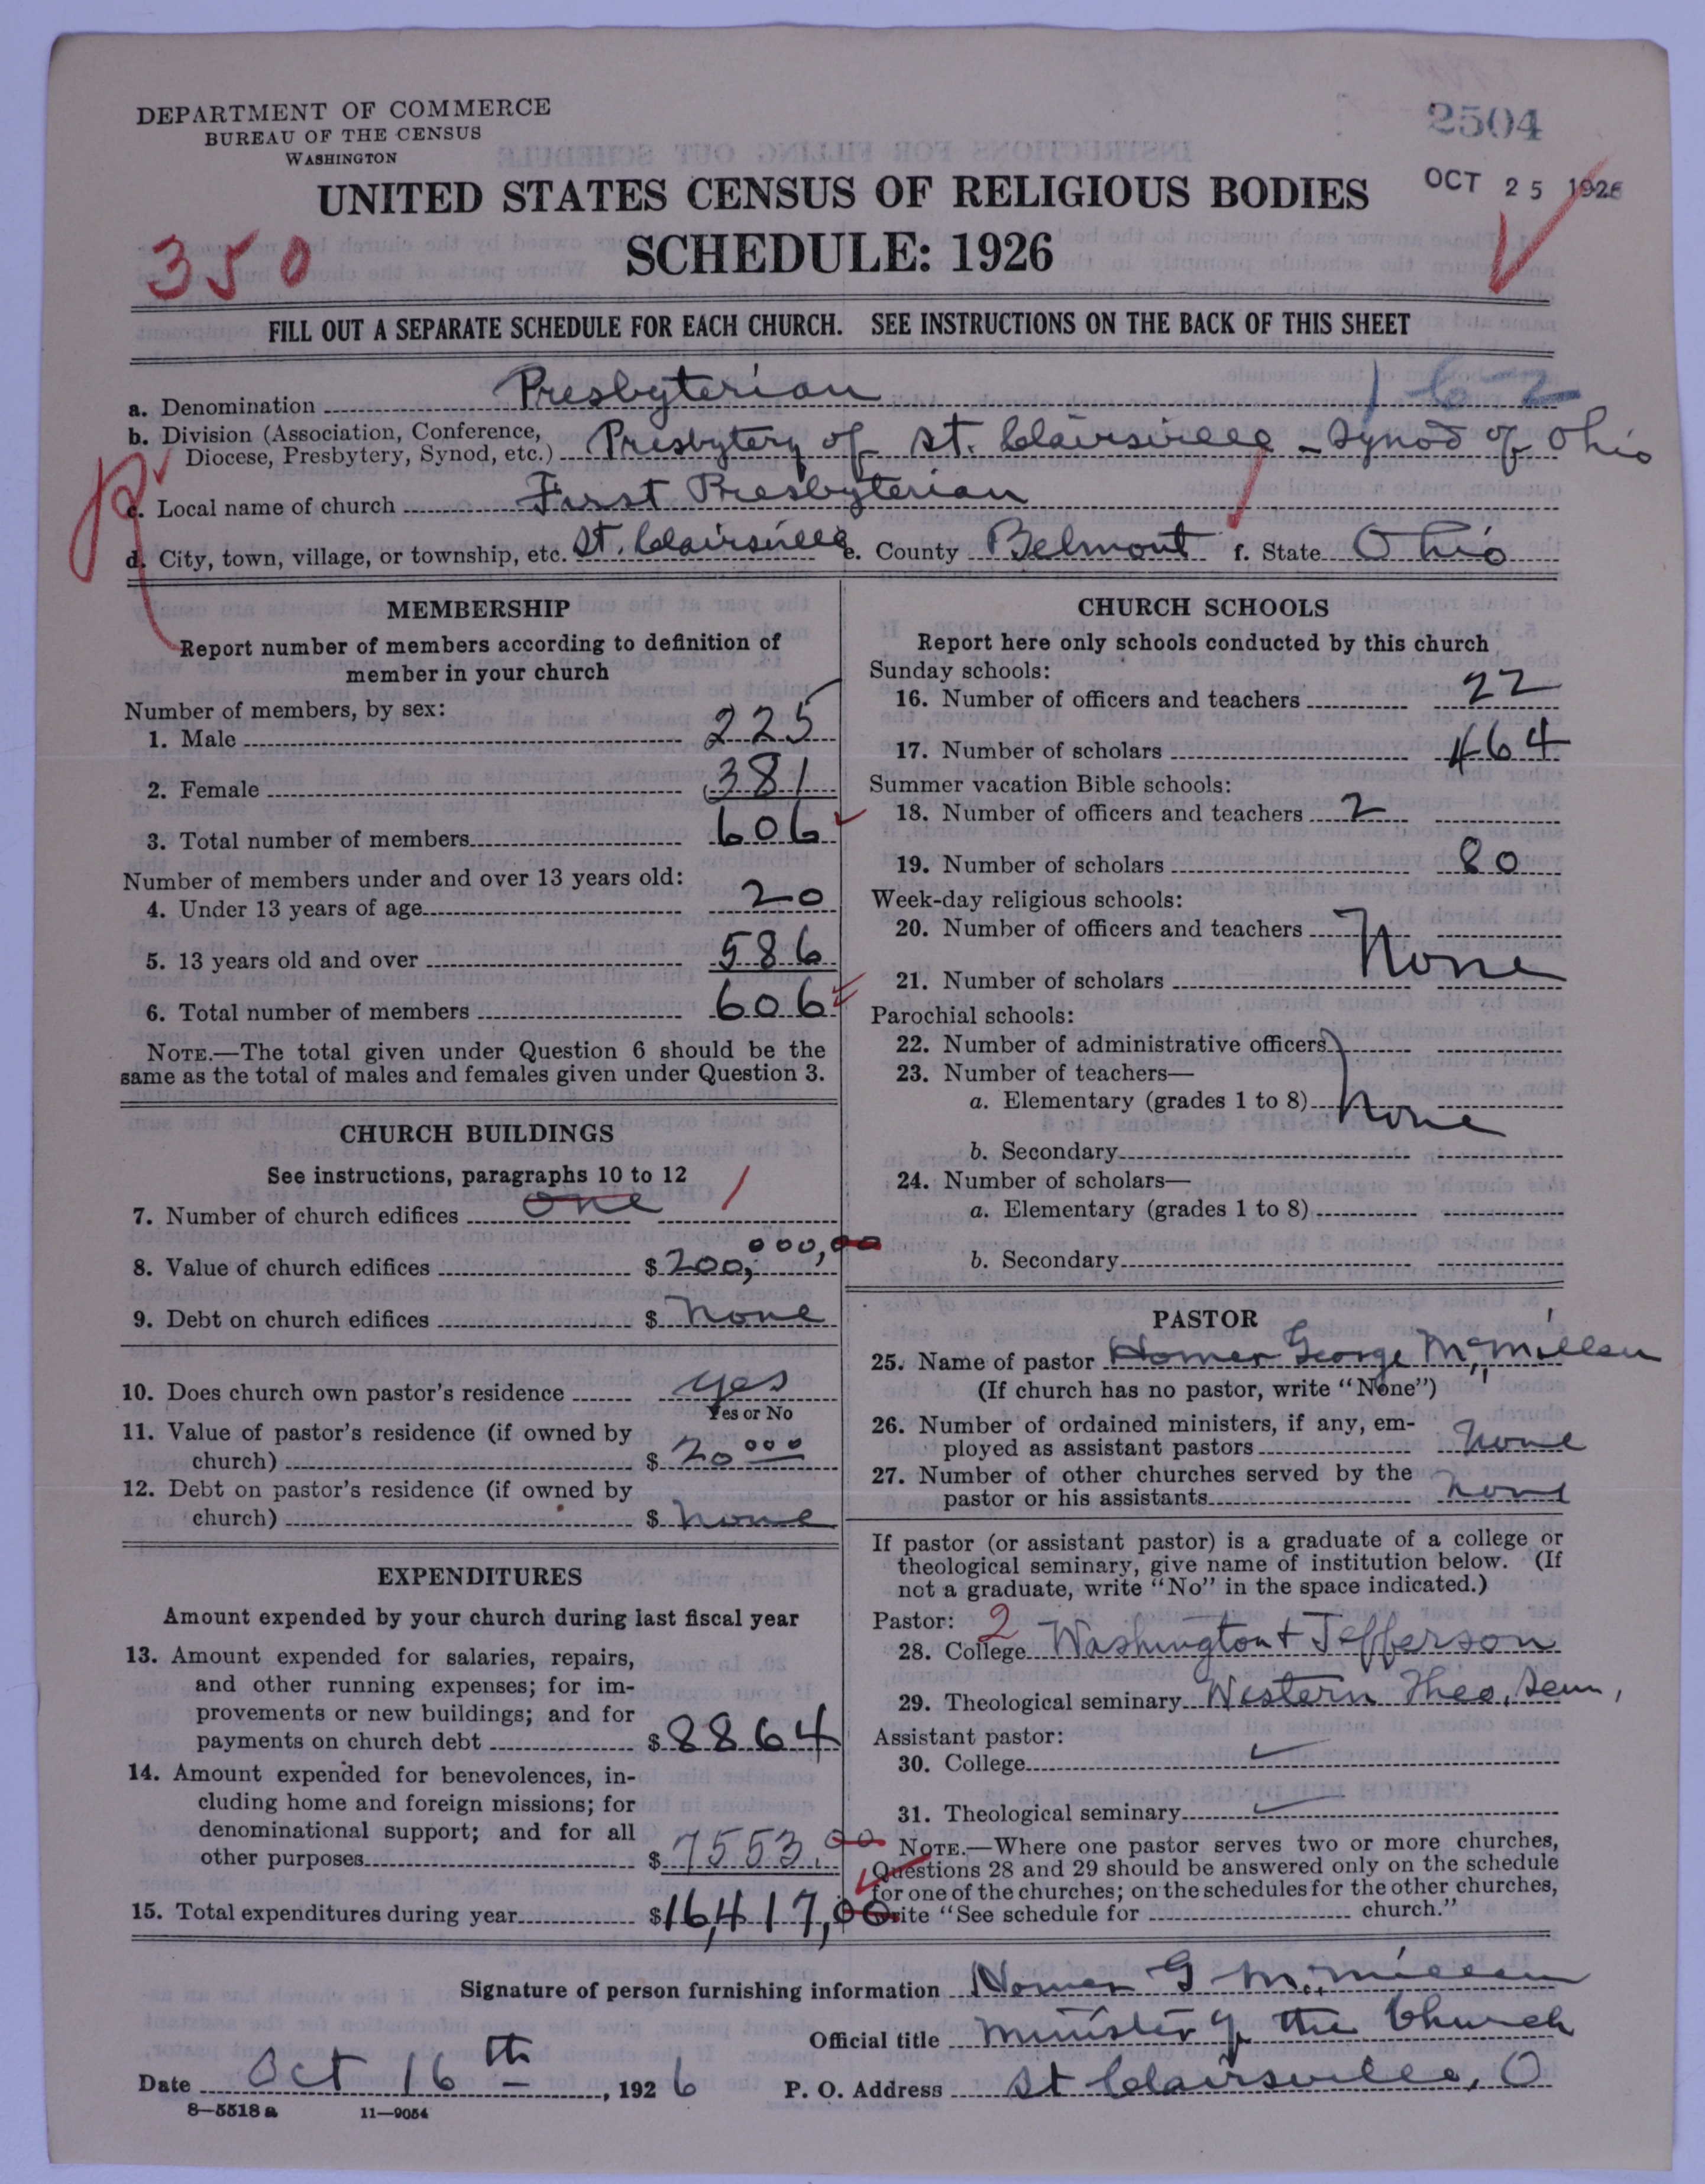 DEPARTMENT OF COMMERCE
BUREAU OF THE CENSUS
WASHINGTON
2504
OCT 25 1926
UNITED STATES CENSUS OF RELIGIOUS BODIES
SCHEDULE: 1926
350
FILL OUT A SEPARATE SCHEDULE FOR EACH CHURCH. SEE INSTRUCTIONS ON THE BACK OF THIS SHEET
a. Denomination Presbyterian 162
b. Division (Association, Conference,
Diocese, Presbytery, Synod, etc.) Presbytery of St. Clairsville - Synod of Ohio
c. Local name of church First Presbyterian
d. City, town, village, or township, etc. St. Clairsville e. County Belmont f. State Ohio
MEMBERSHIP
Report number of members according to definition of
member in your church
Number of members, by sex:
1. Male 225
2. Female 381
3. Total number of members 606
Number of members under and over 13 years old:
4. Under 13 years of age 20
5. 13 years old and over 586
6. Total number of members 606
NOTE.—The total given under Question 6 should be the
same as the total of males and females given under Question 3.
CHURCH BUILDINGS
See instructions, paragraphs 10 to 12
7. Number of church edifices one 1
8. Value of church edifices $ 200,000,00
9. Debt on church edifices $ none
10. Does church own pastor's residence yes
Yes or No
11. Value of pastor's residence (if owned by
church) $ 20000
12. Debt on pastor's residence (if owned by
church) $ none
EXPENDITURES
Amount expended by your church during last fiscal year
13. Amount expended for salaries, repairs,
and other running expenses; for im-
provements or new buildings; and for
payments on church debt $ 8864
14. Amount expended for benevolences, in-
cluding home and foreign missions; for
denominational support; and for all
other purposes $ 7553.00
15. Total expenditures during year $ 16,417,00
CHURCH SCHOOLS
Report here only schools conducted by this church
Sunday schools:
16. Number of officers and teachers 22
17. Number of scholars 464
Summer vacation Bible schools:
18. Number of officers and teachers 2
19. Number of scholars 80
Week-day religious schools:
20. Number of officers and teachers None
21. Number of scholars
Parochial schools:
22. Number of administrative officers
23. Number of teachers—
a. Elementary (grades 1 to 8) none
b. Secondary
24. Number of scholars—
a. Elementary (grades 1 to 8)
b. Secondary
PASTOR
25. Name of pastor Homer George McMillan
(If church has no pastor, write "None")
26. Number of ordained ministers, if any, em-
ployed as assistant pastors none
27. Number of other churches served by the
pastor or his assistants none
If pastor (or assistant pastor) is a graduate of a college or
theological seminary, give name of institution below. (If
not a graduate, write "No" in the space indicated.)
Pastor: 2
28. College Washington & Jefferson
29. Theological seminary Western Theo. Sem,
Assistant pastor:
30. College
31. Theological seminary
NOTE.—Where one pastor serves two or more churches,
Questions 28 and 29 should be answered only on the schedule
for one of the churches; on the schedules for the other churches,
write "See schedule for church."
Signature of person furnishing information Homer G McMillan
Official title Minister of the Church
Date Oct 16th, 1926 P. O. Address St Clairsville, O
8—5518 a 11—9054